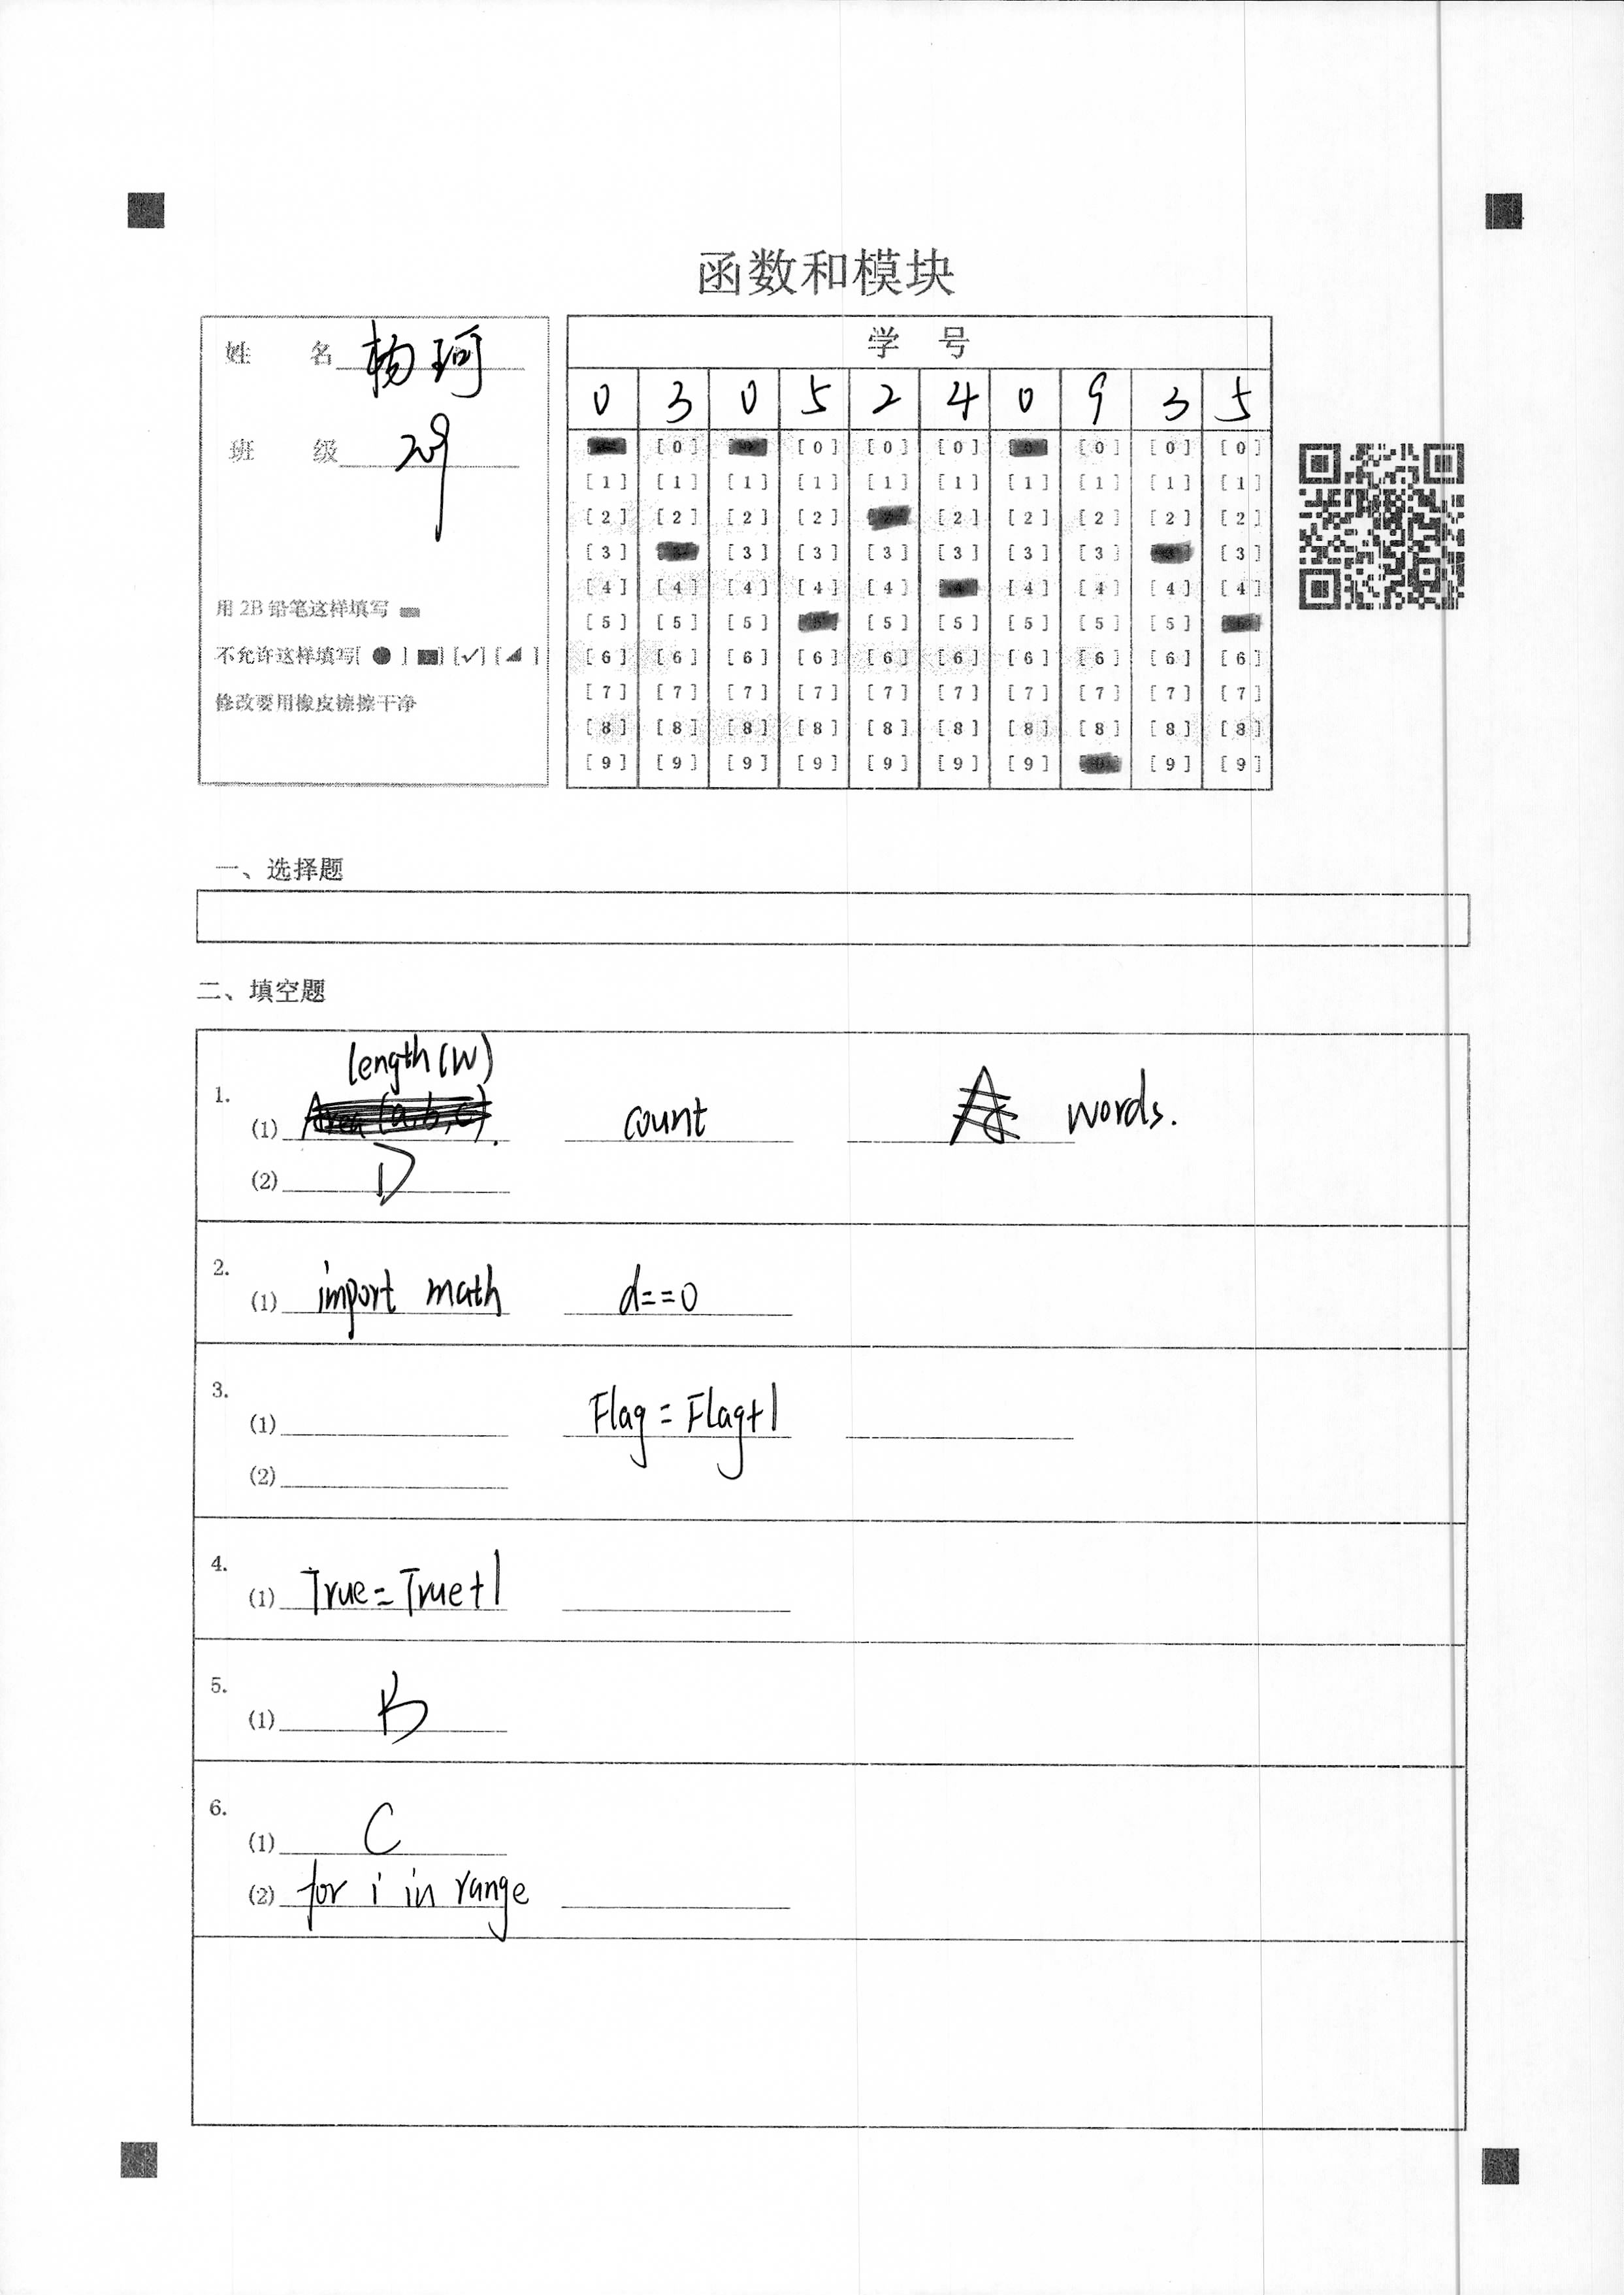 函数和模块
姓 名 杨珂
班 级 29
用 2B 铅笔这样填写
不允许这样填写[ ● ] [■] [✓] [◢ ]
修改要用橡皮擦擦干净
学 号
0 3 0 5 2 4 0 9 3 5
[0] [0] [0] [0] [0] [0]
[1] [1] [1] [1] [1] [1] [1] [1] [1] [1]
[2] [2] [2] [2] [2] [2] [2] [2] [2]
[3] [3] [3] [3] [3] [3] [3] [3]
[4] [4] [4] [4] [4] [4] [4] [4] [4]
[5] [5] [5] [5] [5] [5] [5] [5]
[6] [6] [6] [6] [6] [6] [6] [6] [6] [6]
[7] [7] [7] [7] [7] [7] [7] [7] [7] [7]
[8] [8] [8] [8] [8] [8] [8] [8] [8] [8]
[9] [9] [9] [9] [9] [9] [9] [9] [9]
一、选择题
二、填空题
1.
length(w)
(1) Area(a,b,c). count A words.
(2) D
2.
(1) import math d==0
3.
(1) Flag = Flag+1
(2)
4.
(1) True=True+1
5.
(1) B
6.
(1) C
(2) for i in range